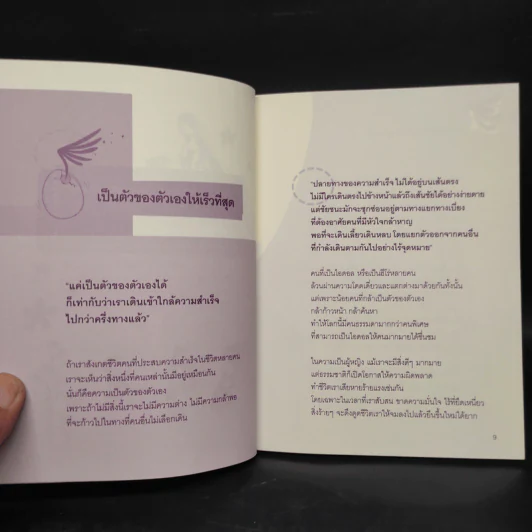 เป็นตัวของตัวเองให้เร็วที่สุด
"แค่เป็นตัวของตัวเองได้
ก็เท่ากับว่าเราเดินเข้าใกล้ความสำเร็จ
ไปกว่าครึ่งทางแล้ว"
ถ้าเราสังเกตชีวิตคนที่ประสบความสำเร็จในชีวิตหลายคน
เราจะเห็นว่าสิ่งหนึ่งที่คนเหล่านั้นมีอยู่เหมือนกัน
นั่นก็คือความเป็นตัวของตัวเอง
เพราะถ้าไม่มีสิ่งนี้เราจะไม่มีความต่าง ไม่มีความกล้าพอ
ที่จะก้าวไปในทางที่คนอื่นไม่เลือกเดิน
"ปลายทางของความสำเร็จ ไม่ได้อยู่บนเส้นตรง
ไม่มีใครเดินตรงไปข้างหน้าแล้วถึงเส้นชัยได้อย่างง่ายดาย
แต่ชัยชนะมักจะซุกซ่อนอยู่ตามทางแยกทางเบี่ยง
ที่ต้องอาศัยคนที่มีหัวใจกล้าหาญ
พอที่จะเดินเลี้ยวเดินหลบ โดยแยกตัวออกจากคนอื่น
ที่กำลังเดินตามกันไปอย่างไร้จุดหมาย"
คนที่เป็นไอดอล หรือเป็นฮีโร่หลายคน
ล้วนผ่านความโดดเดี่ยวและแตกต่างมาด้วยกันทั้งนั้น
แต่เพราะน้อยคนที่กล้าเป็นตัวของตัวเอง
กล้าก้าวหน้า กล้าค้นหา
ทำให้โลกนี้มีคนธรรมดามากกว่าคนพิเศษ
ที่สามารถเป็นไอดอลให้คนมากมายได้ชื่นชม
ในความเป็นผู้หญิง แม้เราจะมีสิ่งดีๆ มากมาย
แต่ธรรมชาติก็เปิดโอกาสให้ความผิดพลาด
ทำชีวิตเราเสียหายร้ายแรงเช่นกัน
โดยเฉพาะในเวลาที่เราสับสน ขาดความมั่นใจ ไร้ที่ยึดเหนี่ยว
สิ่งร้ายๆ จะดึงดูดชีวิตเราให้จมลงไปแล้วยืนขึ้นใหม่ได้ยาก
9